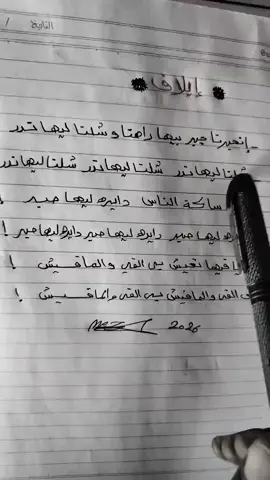 التاريخ /
* إيلاف *
- إنجبرنا جبر بيها راهنا و شلنا ليها ندر
شلنا ليها ندر شلنا ليها ندر شلنا ليها ندر
ساكة الناس دايره ليها صبر !
ليها صبر دايره ليها صبر دايره ليها صبر !
فيها نعيش بى الفى والمافيش !
الفى والمافيش بى الفى والمافيش !
2026